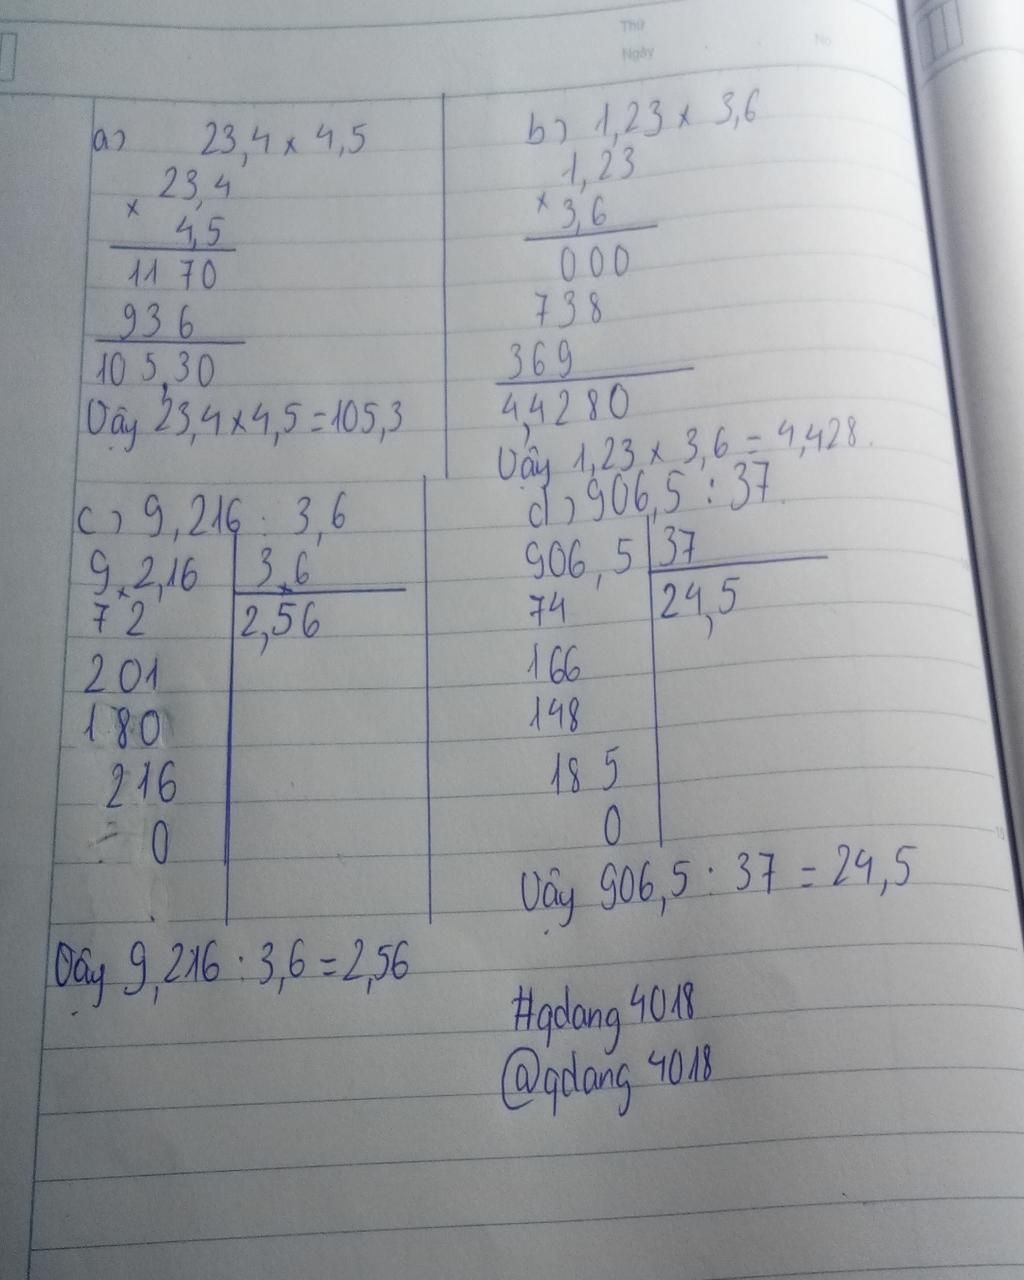 Thứ
Ngày
No
a) 23,4 x 4,5
23,4
x
4,5
1170
936
105,30
Vậy 23,4 x 4,5 = 105,3
b) 1,23 x 3,6
1,23
x 3,6
000
738
369
4,4280
Vậy 1,23 x 3,6 = 4,428.
c) 9,216 : 3,6
9,2,16 3,6
72 2,56
201
180
216
0
Vậy 9,216 : 3,6 = 2,56
d) 906,5 : 37.
906,5 37
74 24,5
166
148
185
0
Vậy 906,5 : 37 = 24,5
#qdang 4018
@qdang 4018